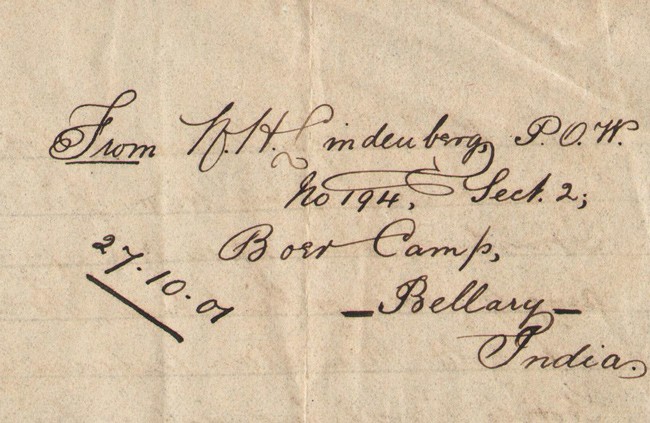 From W. H. Lindenberg, P.O.W.
No 194, Sect. 2;
Boer Camp,
27.10.01
— Bellary —
India.